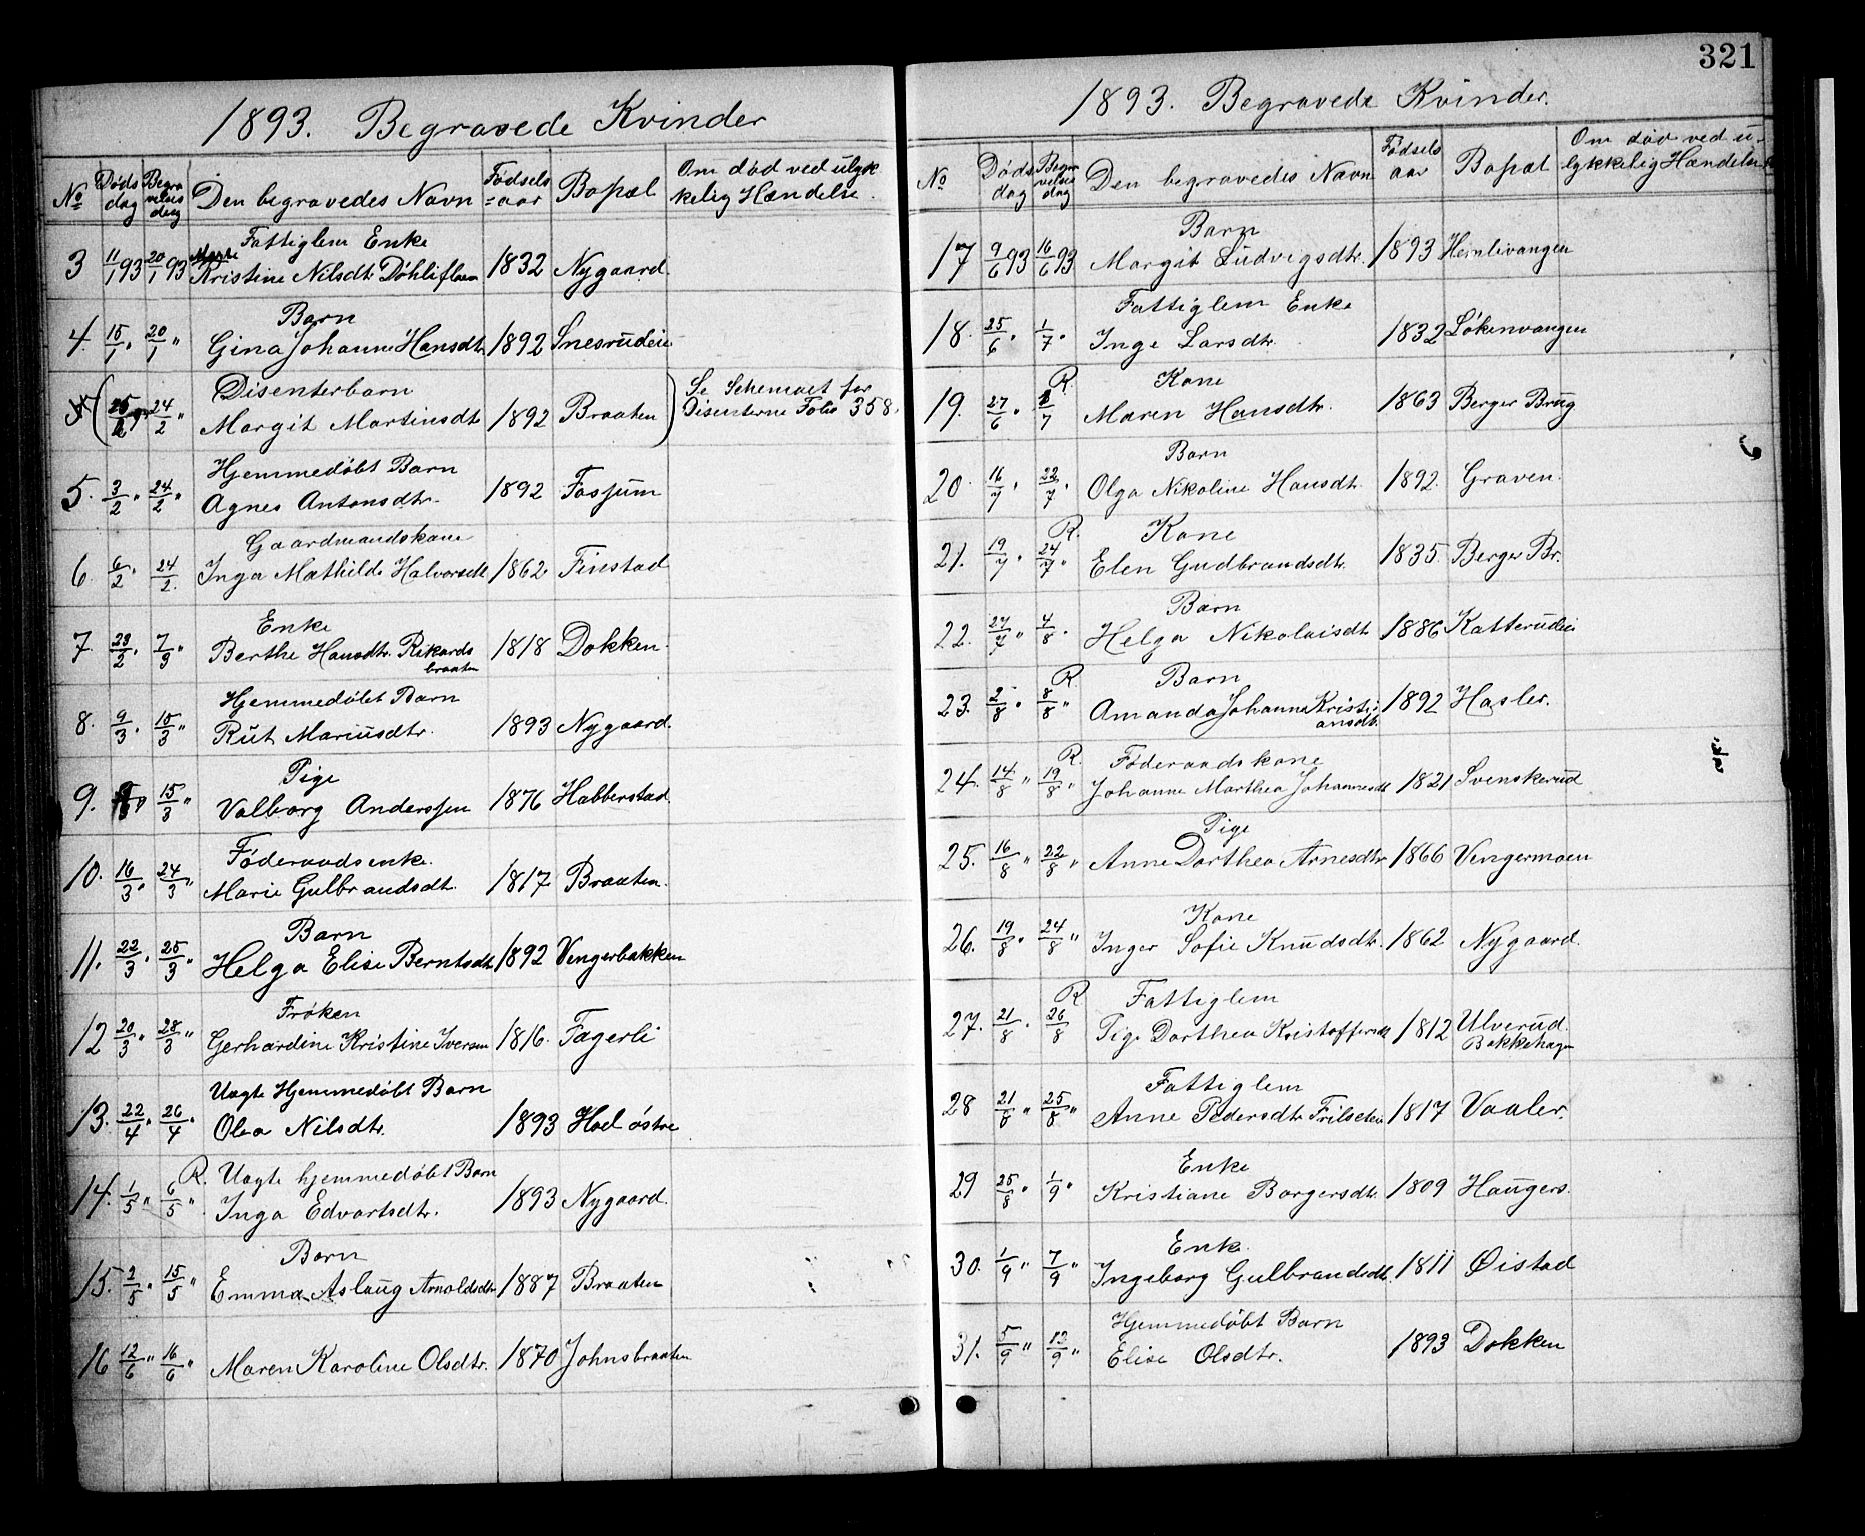 1893. Begravede Kvinder
No Døds dag Begra velses dag Den begravedes Navn Fødsels =aar Bopæl Om død ved ulyk kelig Hændelse.
Fattiglem Enke
3 11/1 93 20/1 93 Kristine Nilsdt. 1832 Nygaard.
Barn
4. 15/1 " 20/1 " Gina Johanne Hansdt. 1892 Snesrudeie
Disenterbarn Se Schemaet for
24/2 " Margit Martinsdt. 1892 Braaten Disenterne Folio 358.
Hjemmedøbt Barn
5. 3/2 " 24/2 " Agnes Antonsdtr. 1892 Fossum
Gaardmandskone
6. 6/2 " 24/2. Inga Mathilde Halvorsdt. 1862 Finstad
Enke
7. 23/2 " 7/3 " Berthe Hansdtr. Rikards 1818 Dokken.
braaten
Hjemmedøbt Barn
8. 9/3 " 15/3 " Rut Mariusdtr. 1893 Nygaard.
Pige
9. 15/3 " Valborg Anderssen 1876 Habberstad.
Føderaadsenke.
10. 16/3 " 24/3 " Marie Gulbrandsdt. 1817 Braaten.
Barn
11. 22/3 " 25/3 " Helga Elise Berntsdt. 1892 Vengerbakken
Frøken
12 20/3 " 28/3 " Gerhardine Kristine Iversen 1816. Fagerli
Uægte Hjemmedøbt Barn
13. 22/4 " 26/4 " Olea Nilsdtr. 1893 Hoel østre
R. Uægte hjemmedøbt Barn
14. 1/5 " 6/5 " Inga Edvartsdtr. 1893 Nygaard.
Barn
15. 2/5 " 15/5 " Emma Aslaug Arnoldsdtr. 1887 Braaten
16 12/6 " 16/6 " Maren Karoline Olsdtr. 1870 Johnsbraaten
321
1893. Begravede Kvinder.
No Døds dag Begra velses dag Den begravedes Navn Fødsels aar Bopæl Om død ved u-
lykkelig Hændelse
Barn
17 9/6 93 16/6 93 Margit Ludvigsdtr. 1893 Hemlivangen
Fattiglem Enke
18. 25/6 " 1/7 " Inge Larsdtr. 1832 Løkenvangen
R. Kone
19. 27/6 " Maren Hansdtr. 1863 Berger Brug
Barn
20. 16/7 " 22/7 " Olga Nikoline Hansdt. 1892. Graven.
R. Kone
21. 19/7 " 24/7 " Elen Gudbrandsdtr. 1835. Berger Br.
Barn
22. 27/7 " 4/8 " Helga Nikolaisdt. 1886 Katterudeie
R. Barn
23. 2/8 " 8/8 " Amanda Johanne Kristi- 1892 Hasler.
ansdt.
R. Føderaadskone
24. 14/8 " 19/8 " Johanne Marthea Johannesdt. 1821 Svenskerud
Pige
25. 16/8 " 22/8 " Anne Dorthea Arnesdtr. 1866 Vengermoen
Kone
26. 19/8 " 24/8 " Inger Sofie Knudsdtr. 1862 Nygaard.
R. Fattiglem
27. 21/8 " 26/8 Pige Dorthea Kristoffersdt. 1812 Ulverud.
Bakkehagen
Fattiglem
28 21/8 " 25/8 " Anne Pedersdtr. Frilseteie 1817 Vaaler.
Enke
29 25/8 " 1/9 " Kristiane Borgersdtr. 1809 Haugers.
Enke
30. 1/9 " 7/9 " Ingeborg Gulbrandsdt. 1811 Øistad
Hjemmedøbt Barn
31. 5/9 " 12/9 " Elise Olsdtr. 1893 Dokken